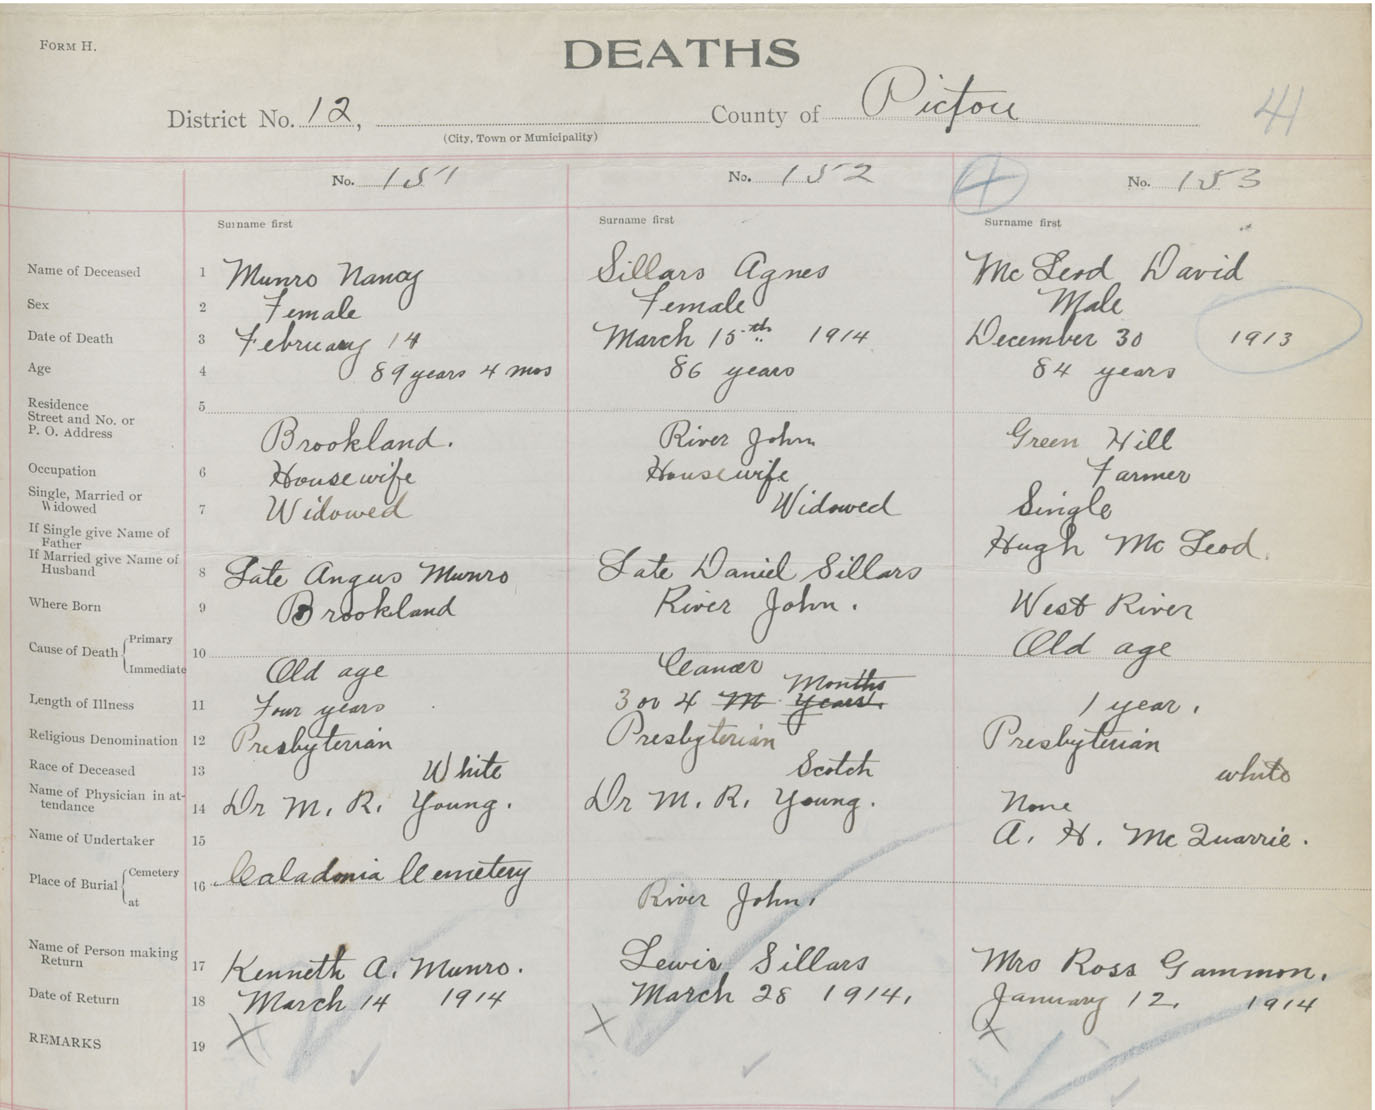 FORM H.
DEATHS
41
District No. 12, County of Pictou
(City, Town or Municipality)
No. 151 No. 152 No. 153
Surname first Surname first Surname first
Name of Deceased 1 Munro Nancy Sillars Agnes Mc Leod David
Sex 2 Female Female Male
Date of Death 3 February 14 March 15th 1914 December 30 1913
Age 4 89 years 4 mos 86 years 84 years
Residence 5
Street and No. or
P. O. Address Brookland. River John Green Hill
Occupation 6 Housewife Housewife Farmer
Single, Married or
Widowed 7 Widowed Widowed Single
If Single give Name of
Father Hugh Mc Leod.
If Married give Name of
Husband 8 Late Angus Munro Late Daniel Sillars
Where Born 9 Brookland River John. West River
Cause of Death Primary 10 Old age
Immediate Old age Cancer
Months
Length of Illness 11 Four years 3 or 4 M Years. 1 year.
Religious Denomination 12 Presbyterian Presbyterian Presbyterian
Race of Deceased 13 White Scotch white
Name of Physician in at-
tendance 14 Dr M. R. Young. Dr M. R. Young. None
Name of Undertaker 15 A. H. McQuarrie.
Place of Burial Cemetery 16 Caladonia Cemetery
at River John.
Name of Person making
Return 17 Kenneth A. Munro. Lewis Sillars Mrs Ross Gammon.
Date of Return 18 March 14 1914 March 28 1914. January 12. 1914
REMARKS 19 X X X